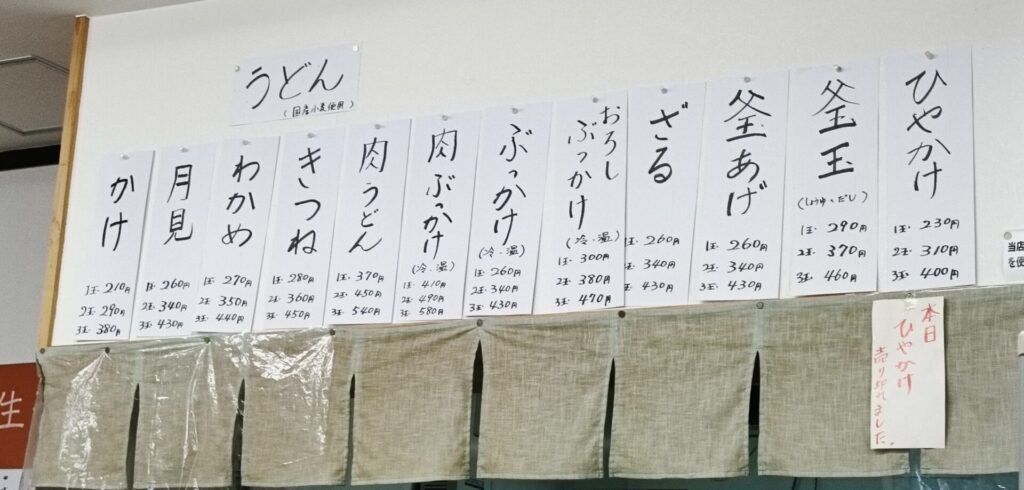 うどん
(国産小麦使用)
ひやかけ
1玉・230円
2玉・310円
3玉・400円
釜玉
(しょうゆ・だし)
1玉・290円
2玉・370円
3玉・460円
釜あげ
1玉・260円
2玉・340円
3玉・430円
ざる
1玉・260円
2玉・340円
3玉・430円
おろし
ぶっかけ
(冷・温)
1玉・300円
2玉・380円
3玉・470円
ぶっかけ
(冷・温)
1玉・260円
2玉・340円
3玉・430円
肉ぶっかけ
(冷・温)
1玉・410円
2玉・490円
3玉・580円
肉うどん
1玉・370円
2玉・450円
3玉・540円
きつね
1玉・280円
2玉・360円
3玉・450円
わかめ
1玉・270円
2玉・350円
3玉・440円
月見
1玉・260円
2玉・340円
3玉・430円
かけ
1玉・210円
2玉・290円
3玉・380円
本日
ひやかけ
売り切れました。
当店
を使
生